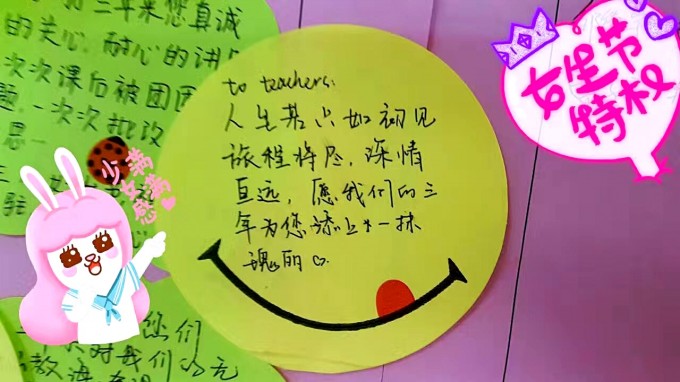 三年来您真诚
的关心,耐心的讲
次次课后被团团
题,一次次批改
to teachers:
人生若只如初见
旅程将尽,深情
亘远,愿我们的三
年为您添上一抹
瑰丽♡.
女生节
特权
满满
少女感
您们
对我们的无